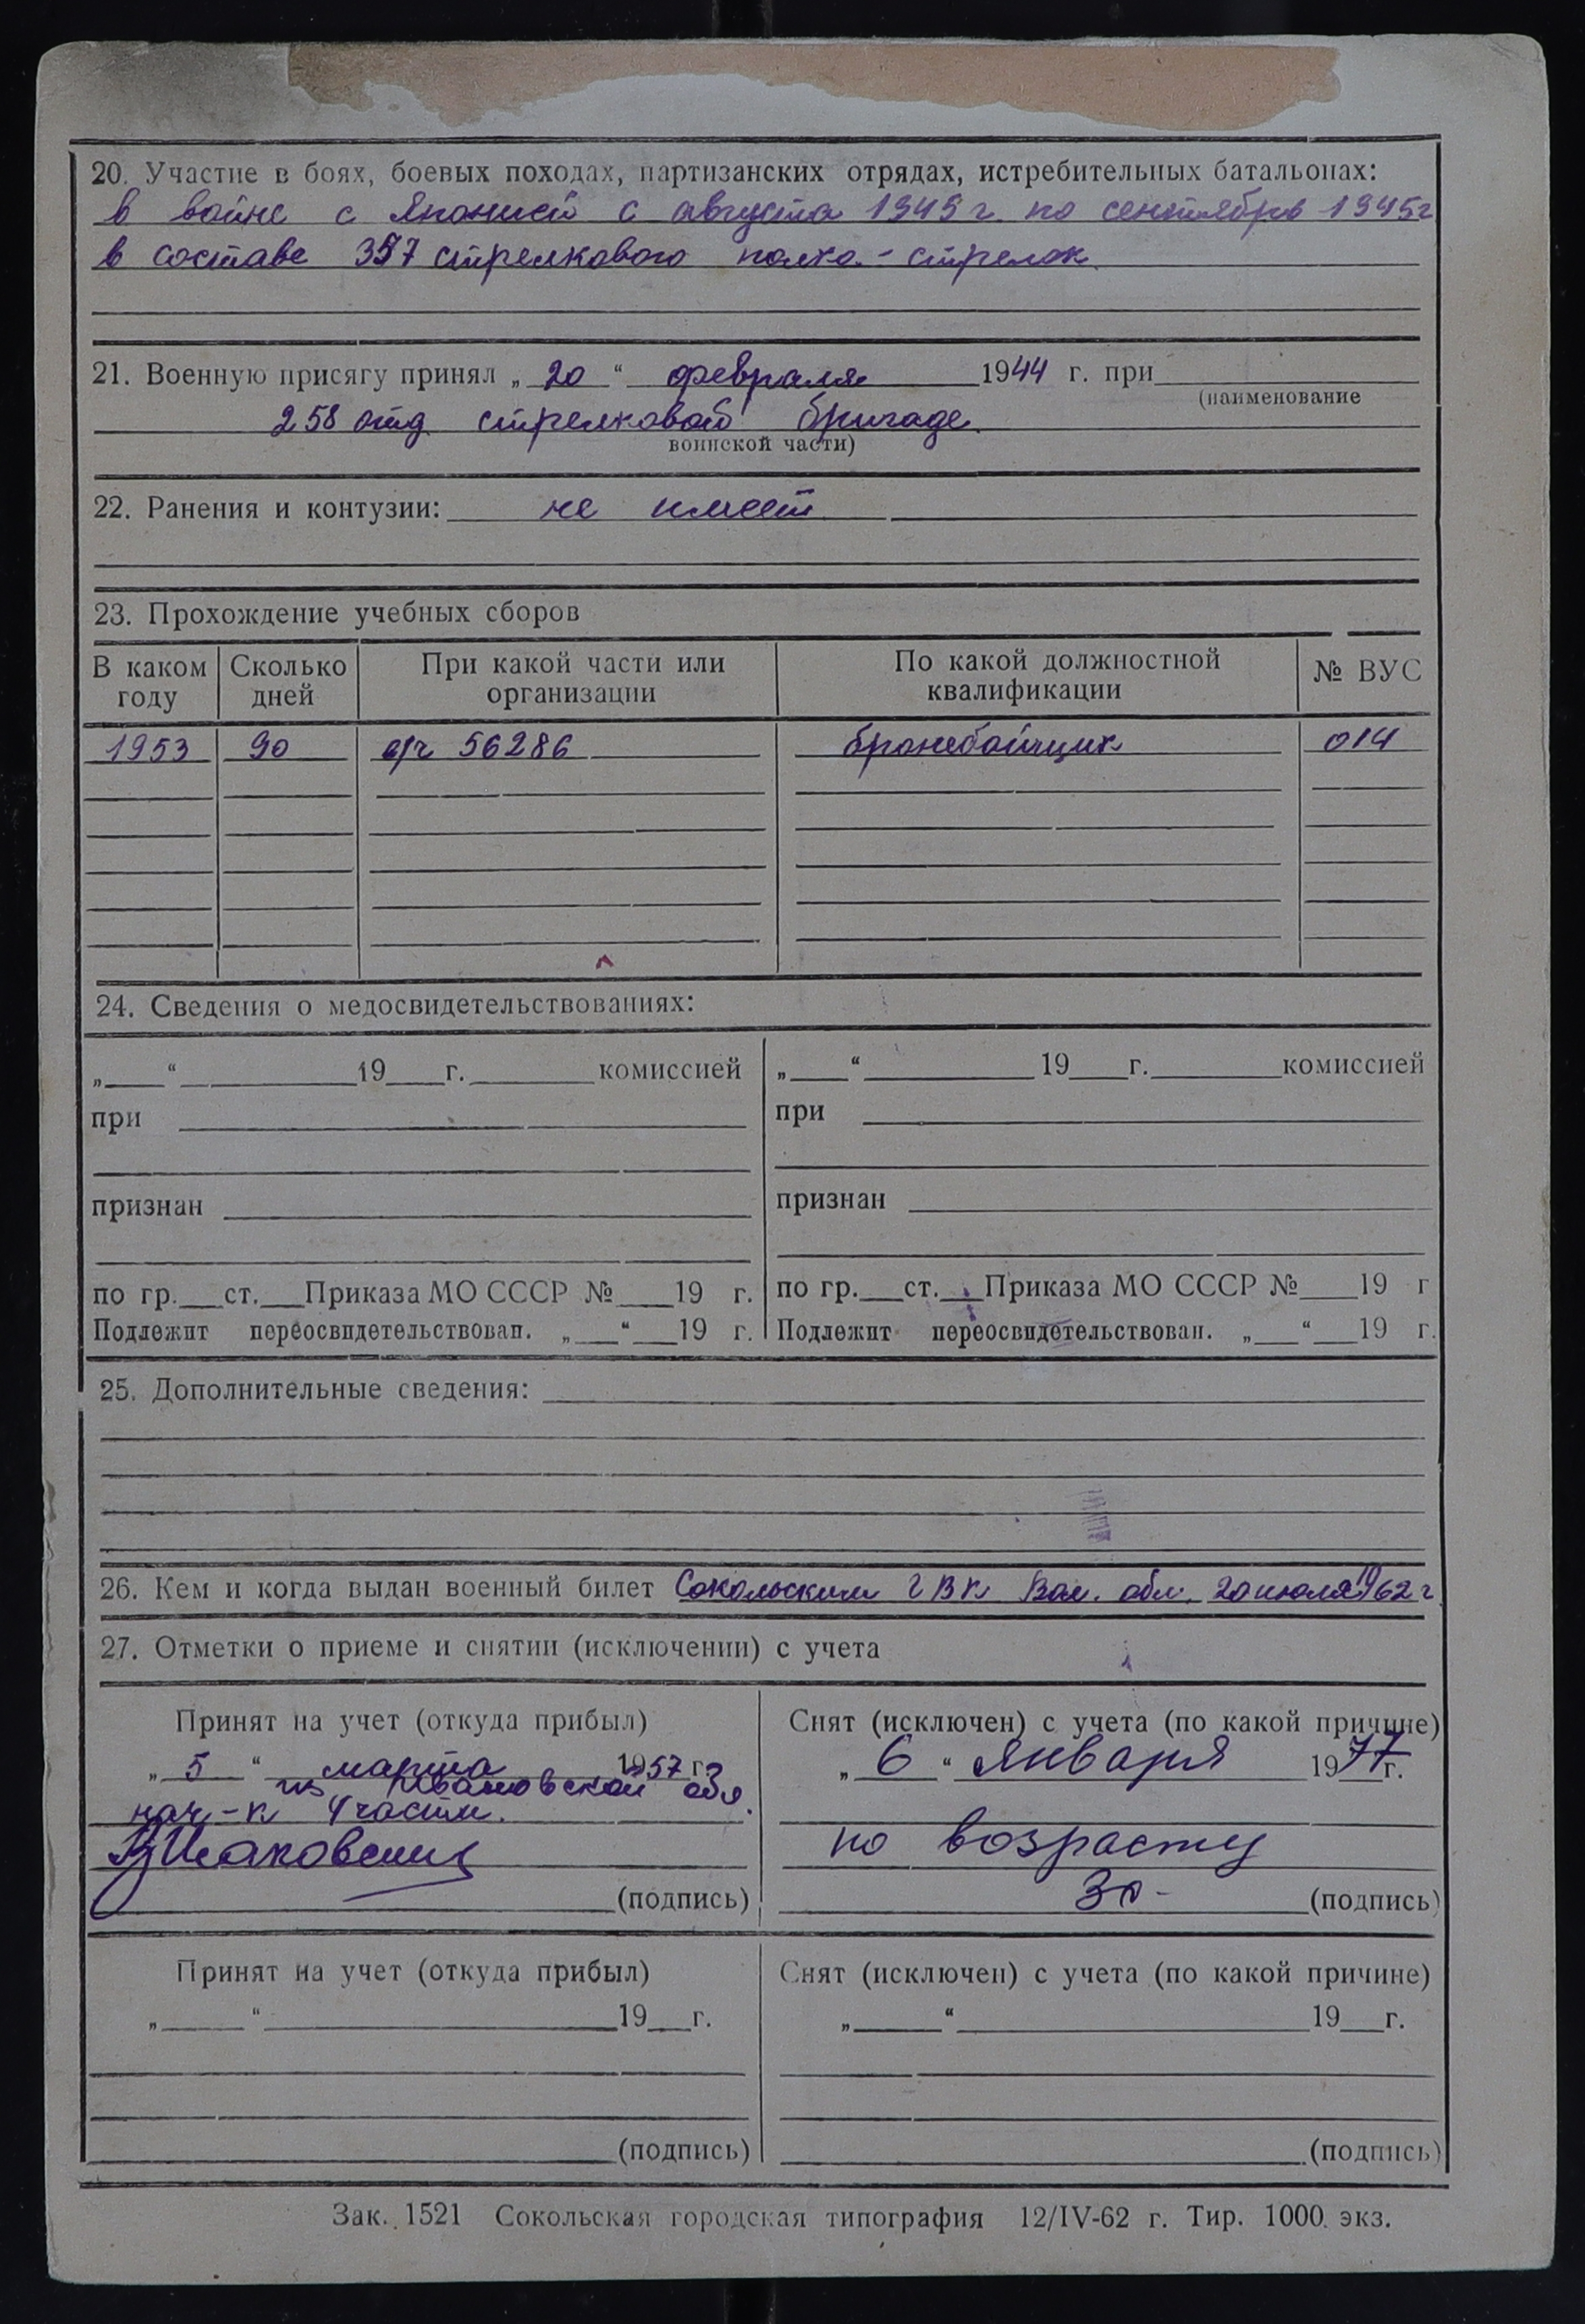 20. Участие в боях, боевых походах, партизанских отрядах, истребительных батальонах:
в войне с Японией с августа 1945 г. по сентябрь 1945 г
в составе 357 стрелкового полка - стрелок
21. Военную присягу принял „ 20 “ февраля 1944 г. при
(наименование
258 отд. стрелковой бригаде
воинской части)
22. Ранения и контузии: не имеет
23. Прохождение учебных сборов
В каком году Сколько дней При какой части или организации По какой должностной квалификации № ВУС
1953 90 в/ч 56286 бронебойщик 014
24. Сведения о медосвидетельствованиях:
„ “ 19 г. комиссией „ “ 19 г. комиссией
при при
признан признан
по гр. ст. Приказа МО СССР № 19 г. по гр. ст. Приказа МО СССР № 19 г
Подлежит переосвидетельствован. „ “ 19 г. Подлежит переосвидетельствован. „ “ 19 г.
25. Дополнительные сведения:
26. Кем и когда выдан военный билет Сокольским ГВК Вол. обл. 20 июля 1962 г.
27. Отметки о приеме и снятии (исключении) с учета
Принят на учет (откуда прибыл) Снят (исключен) с учета (по какой причине)
„ 5 “ марта 1957 г. „ 6 “ января 1977 г.
из Ивановской обл.
нач-к 4 части.
по возрасту
(подпись) (подпись)
Принят на учет (откуда прибыл) Снят (исключен) с учета (по какой причине)
„ “ 19 г. „ “ 19 г.
(подпись) (подпись)
Зак. 1521 Сокольская городская типография 12/IV-62 г. Тир. 1000 экз.